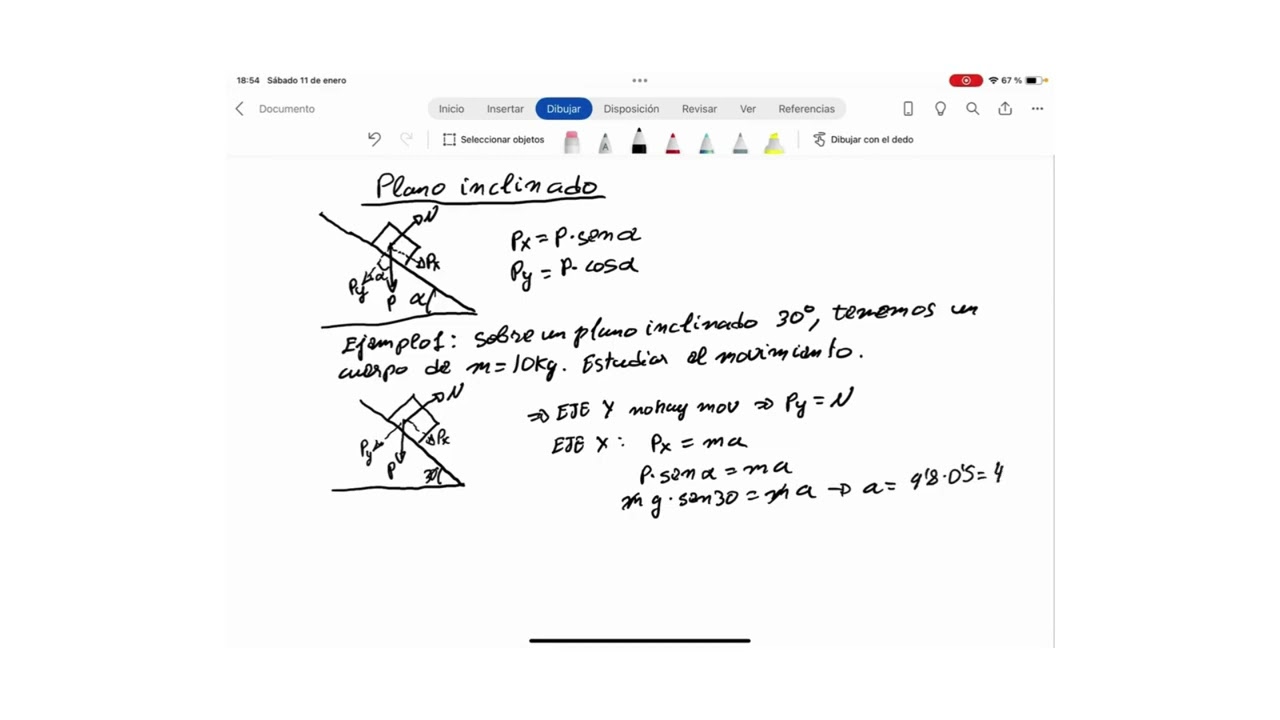 18:54 Sábado 11 de enero
67 %
Documento
Inicio Insertar Dibujar Disposición Revisar Ver Referencias
Seleccionar objetos
A
Dibujar con el dedo
Plano inclinado
N
Px
Py
α
P
α
Px = P·senα
Py = P·cosα
Ejemplo1: Sobre un plano inclinado 30°, tenemos un
cuerpo de m = 10Kg. Estudiar el movimiento.
N
Px
Py
P
30
⇒ EJE Y no hay mov ⇒ Py = N
EJE X: Px = ma
P·senα = ma
m g·sen30 = m a → a = 9'8·0'5 = 4